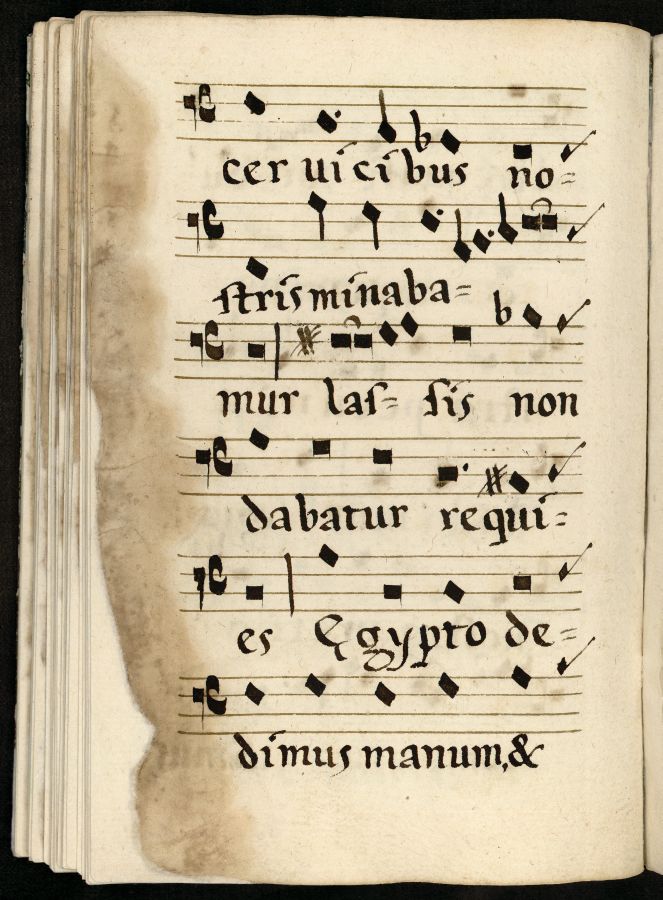 cer vi ci bus no=
stris minaba=
mur las= sis non
dabatur requi=
es Ęgypto de=
dimus manum, &